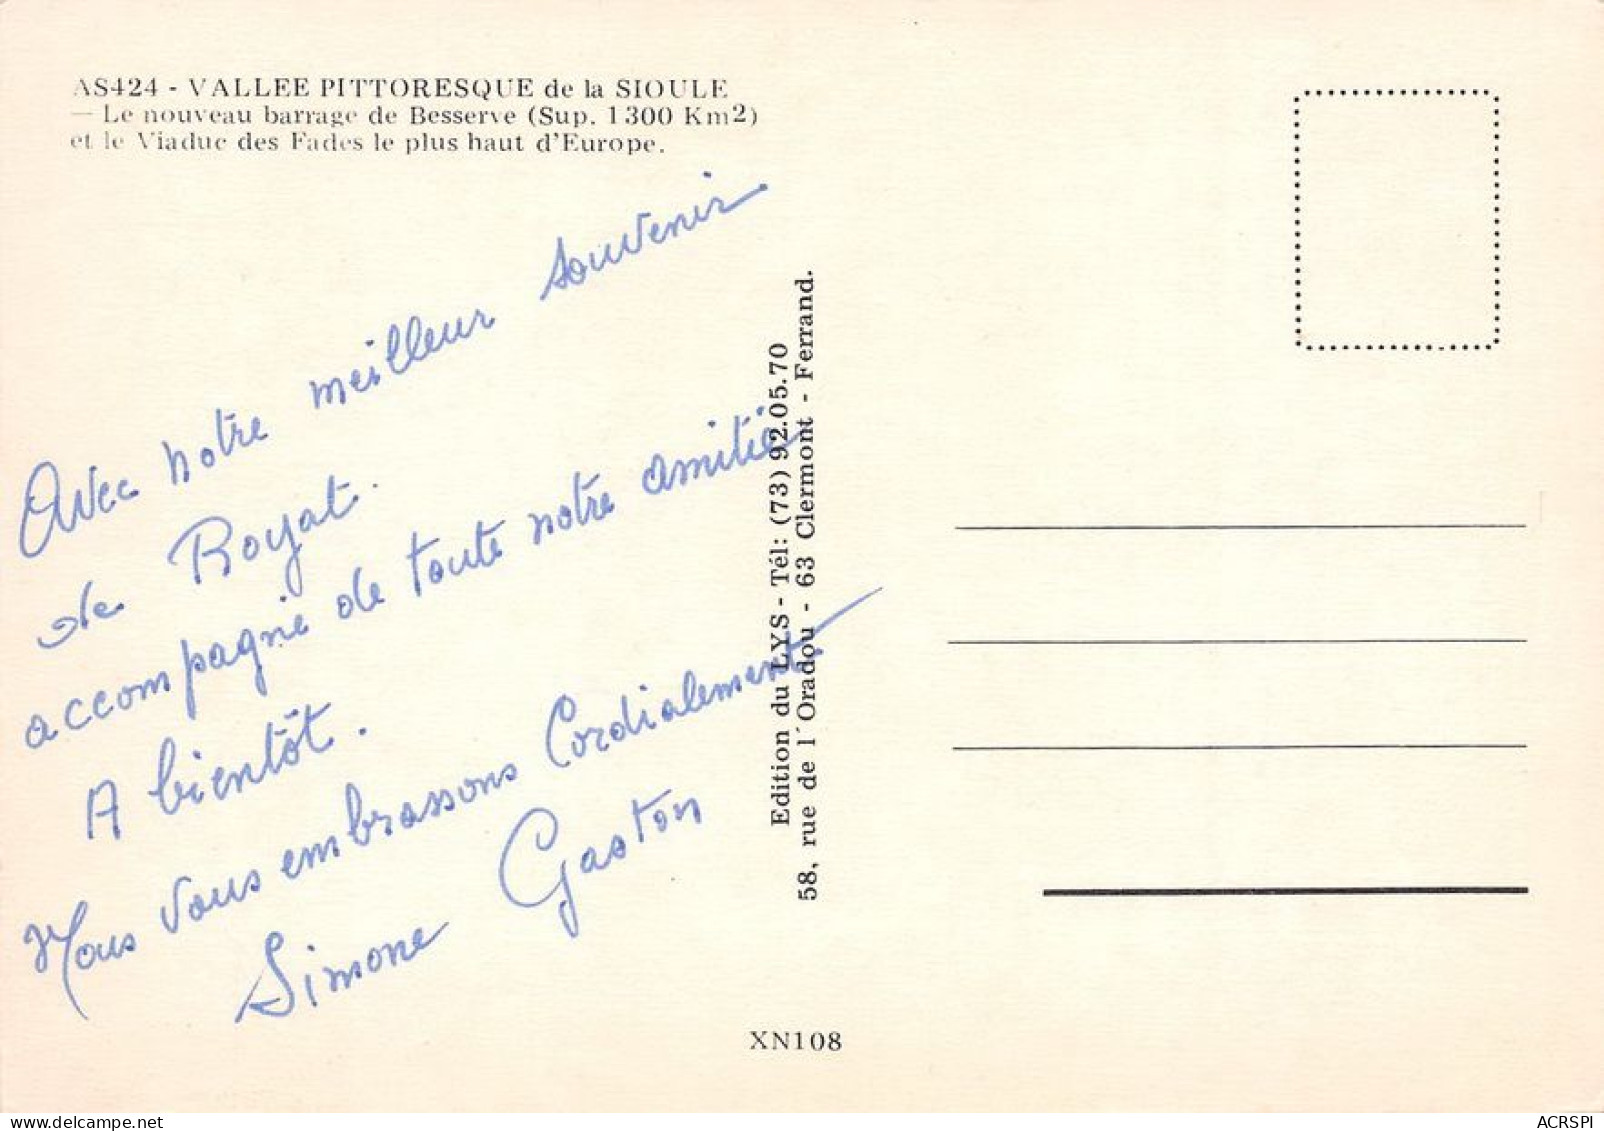 AS424 - VALLEE PITTORESQUE de la SIOULE
— Le nouveau barrage de Besserve (Sup. 1300 Km2)
et le Viaduc des Fades le plus haut d'Europe.
Avec notre meilleur souvenir
de Royat.
accompagné de toute notre amitié
A bientôt.
Nous vous embrassons Cordialement
Simone Gaston
Edition du LYS - Tél: (73) 92.05.70
58, rue de l'Oradou - 63 Clermont - Ferrand.
XN108
ACRSPI